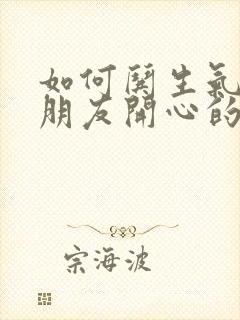 如何鬨生氣
朋友開心的
宗海波